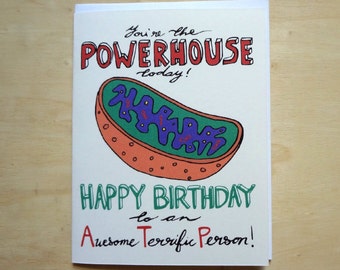 You're the
POWERHOUSE
today!
HAPPY BIRTHDAY
to an
Awesome Terrific Person!